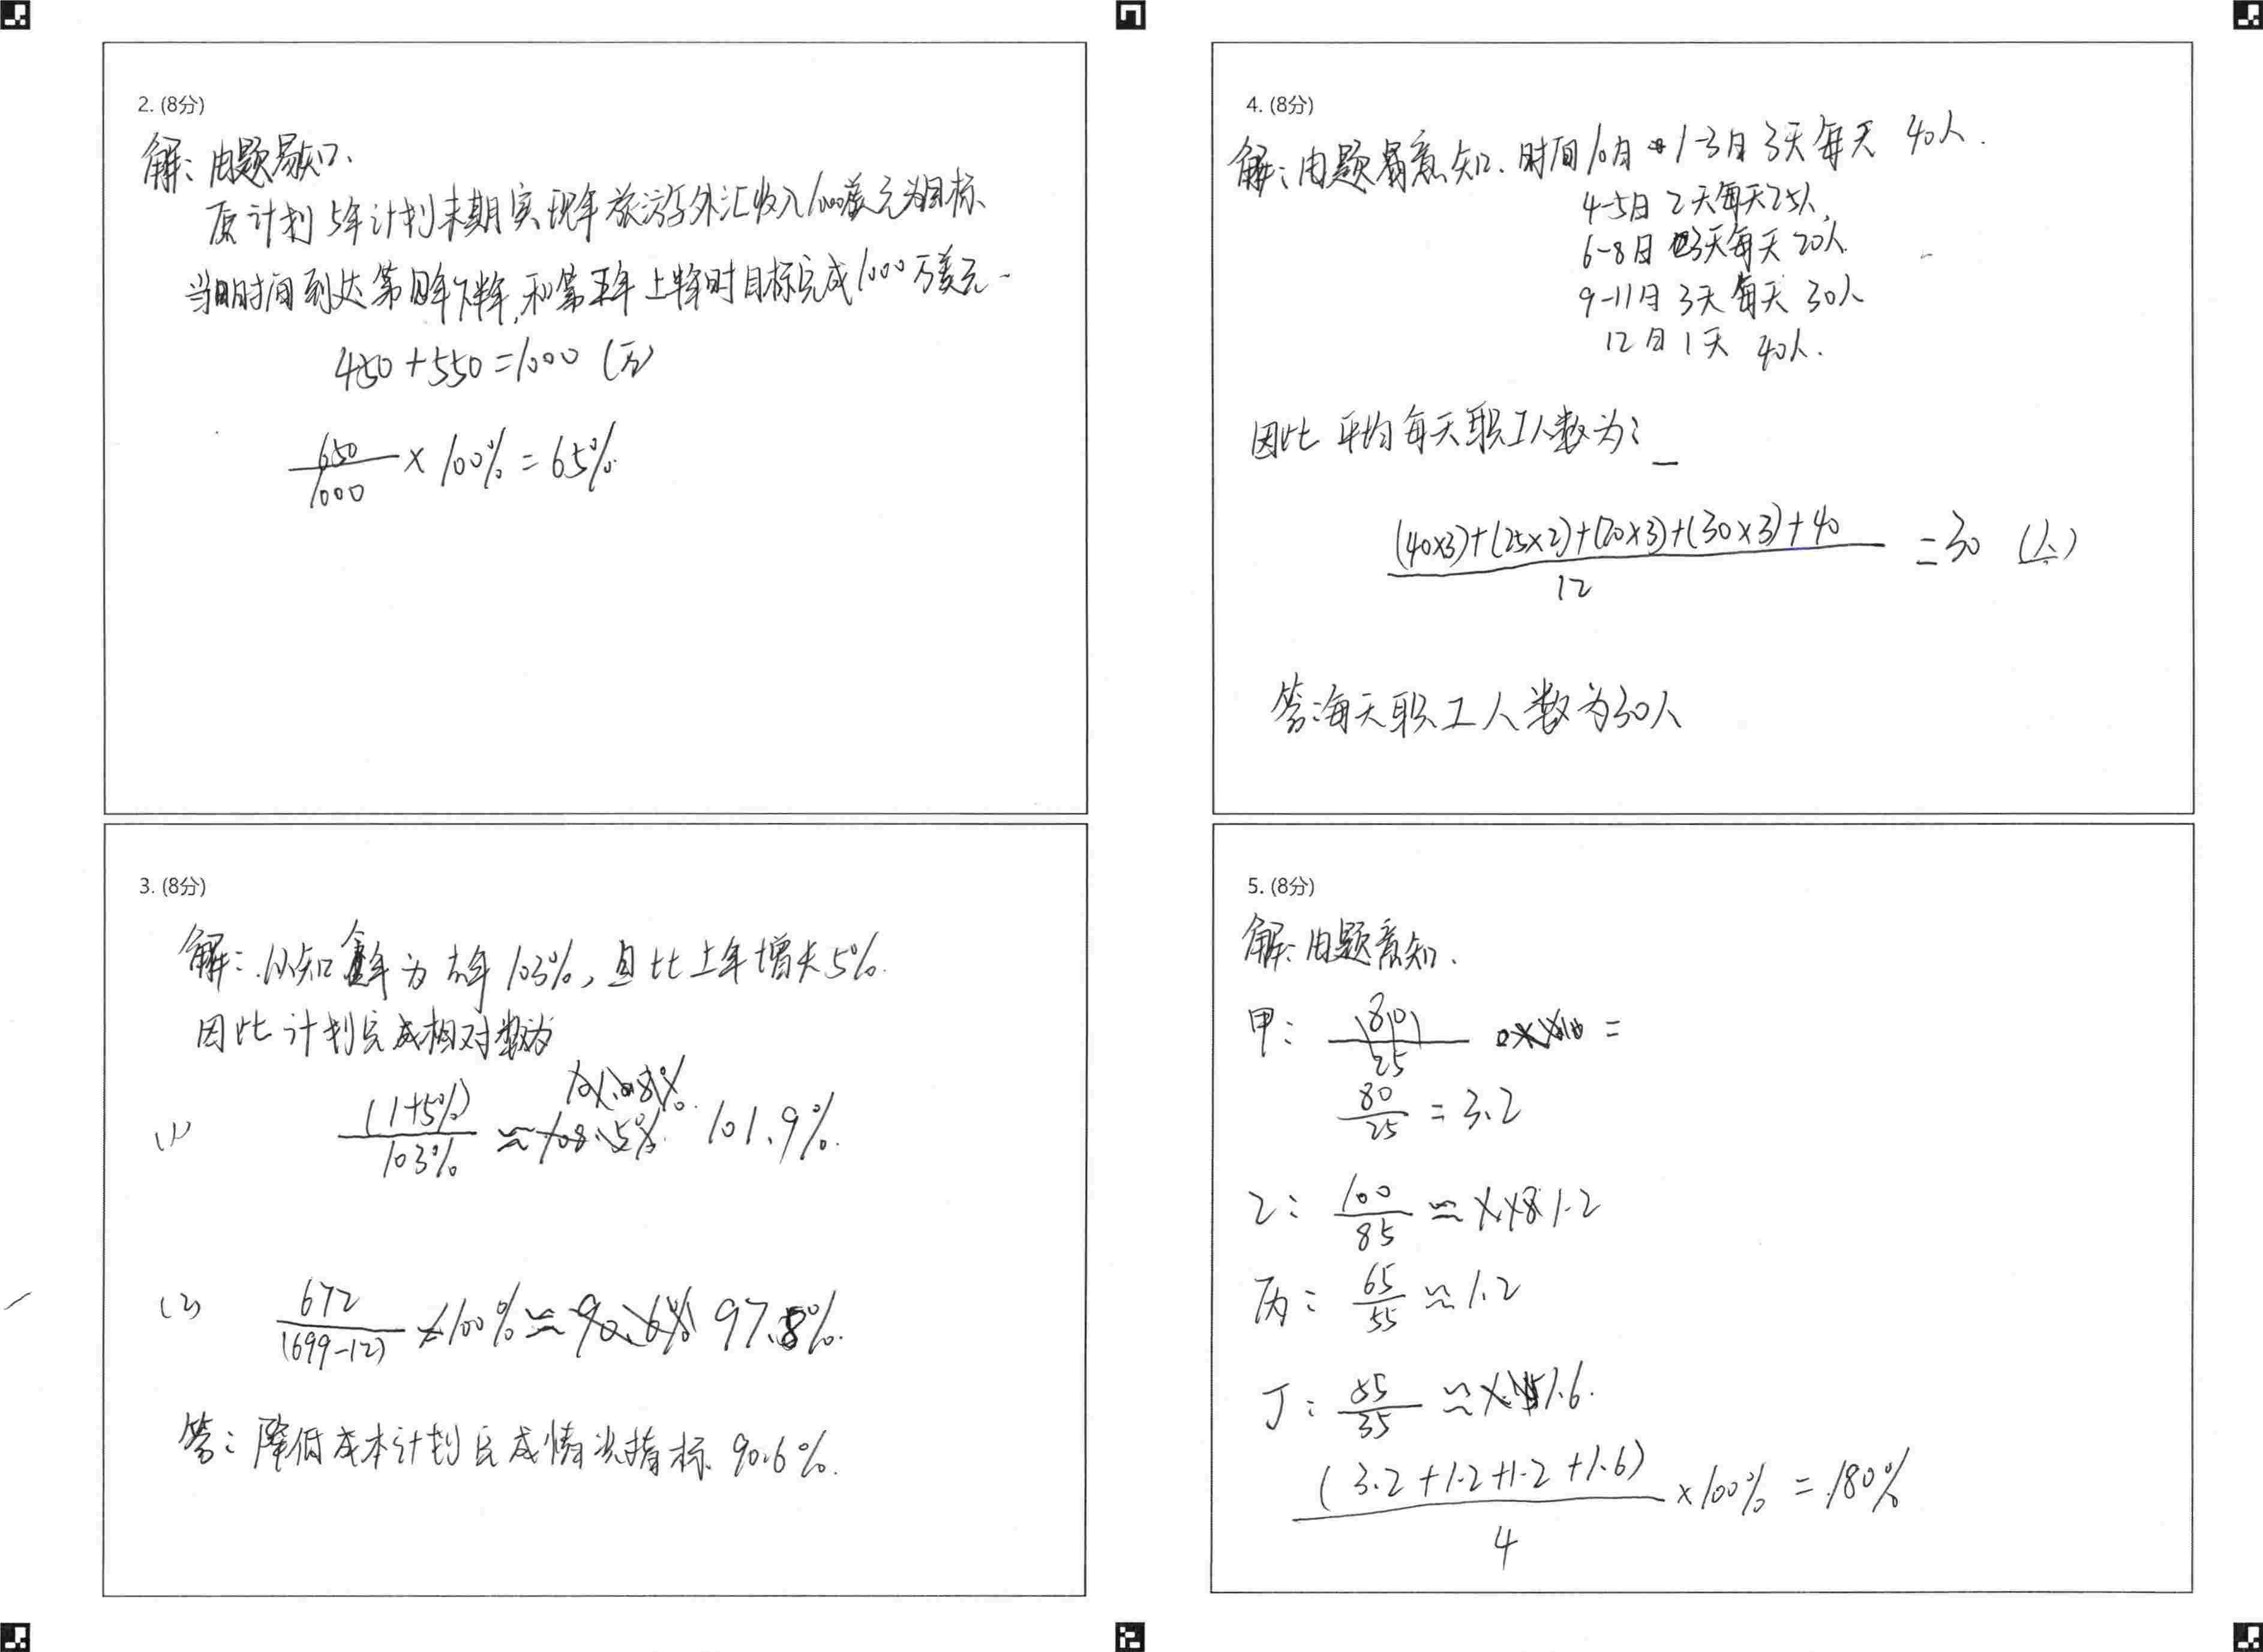 2. (8分)
解：由题易知、
原计划5年计划末期实现年旅游外汇收入1000万美元为目标、
当时间到达第四年下半年,和第五年上半年时目标完成1000万美元.
450+550=1000 (万)
650/1000 × 100% = 65%.
3. (8分)
解：以知今年为去年103%, 且比上年增长5%.
因此计划完成相对数为
(1) (1+5%)/103% ≈ 101.9%.
(2) 672/(699-12) ×100% ≈ 97.8%.
答：降低成本计划完成情况指标 90.6%.
4. (8分)
解：由题意知、时间10月 1-3日 3天每天 40人.
4-5日 2天每天25人,
6-8日 3天每天 20人.
9-11日 3天每天 30人
12日 1天 40人.
因此 平均每天职工人数为：
(40×3)+(25×2)+(20×3)+(30×3)+40 / 12 = 30 (人)
答:每天职工人数为30人
5. (8分)
解：由题意知、
甲： =
80/25 = 3.2
乙： 100/85 ≈ 1.2
丙： 65/55 ≈ 1.2
丁： /35 ≈ 1.6.
(3.2+1.2+1.2+1.6)/4 ×100% = 180%